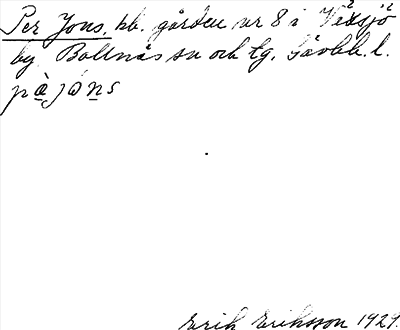 Per Jons, hb. gården nr 8 i Växsjö
by Bollnäs sn och tg. Gävleb. l.
pà̱ jòn̲s
Erik Eriksson 1929.